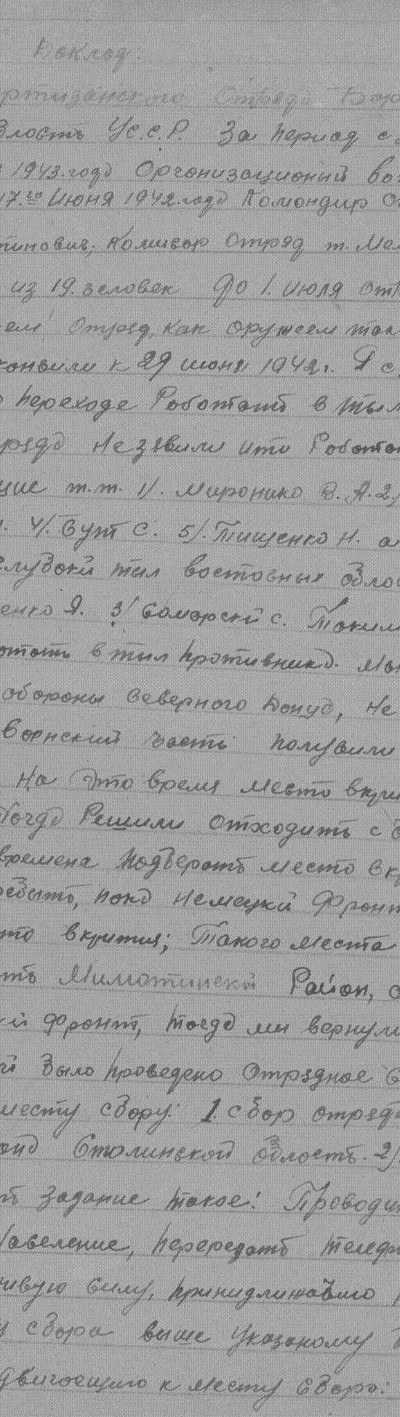 Доклад.
ртизанского Отряда Вор
власть У.С.С.Р. За период с
1943. годо Организационый во
17.го Июня 1942. годо Комондир О
тинович, Комисар Отряд т. Мел
из 19. человек До 1. июля отр
ем Отряд, как оружеем так
кончили к 29 июня 1942 г. Я с
переходе Робототь в тыл
ряда не явили ити Робота
щие т.т. 1/. Миронико В. А. 2/
4/. Бут С. 5/. Тищенко Н. а
глубокй тыл восточных облос
енко Я. 3/ Боморскй с. Таким
ототь в тыл противника. Мо
обороны Северного Донца, Не
воинский часть получили
на это время место вкри
Когда Решили отходить с
времена подберать место вк
ребыть, пока немецкй Фронт
то вкрития; Такого места
ть Милютинскй Район, с
кй Фронт, тогда мы вернули
й было проведено Отрядное
месту сбору: 1. сбор отряд
она Столинской область. 2/
ть задание такое! Проводи
Население, перерезать телеф
живую силу, принидлижавшо
сбора выше указаному
двигоещиго к месту Сбора: